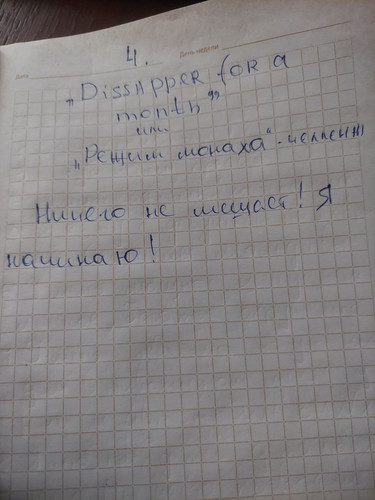 Дата День недели
4.
„Dissapper for a
month"
или
„Режим монаха"-челленж
Ничего не мешает! Я
начинаю!